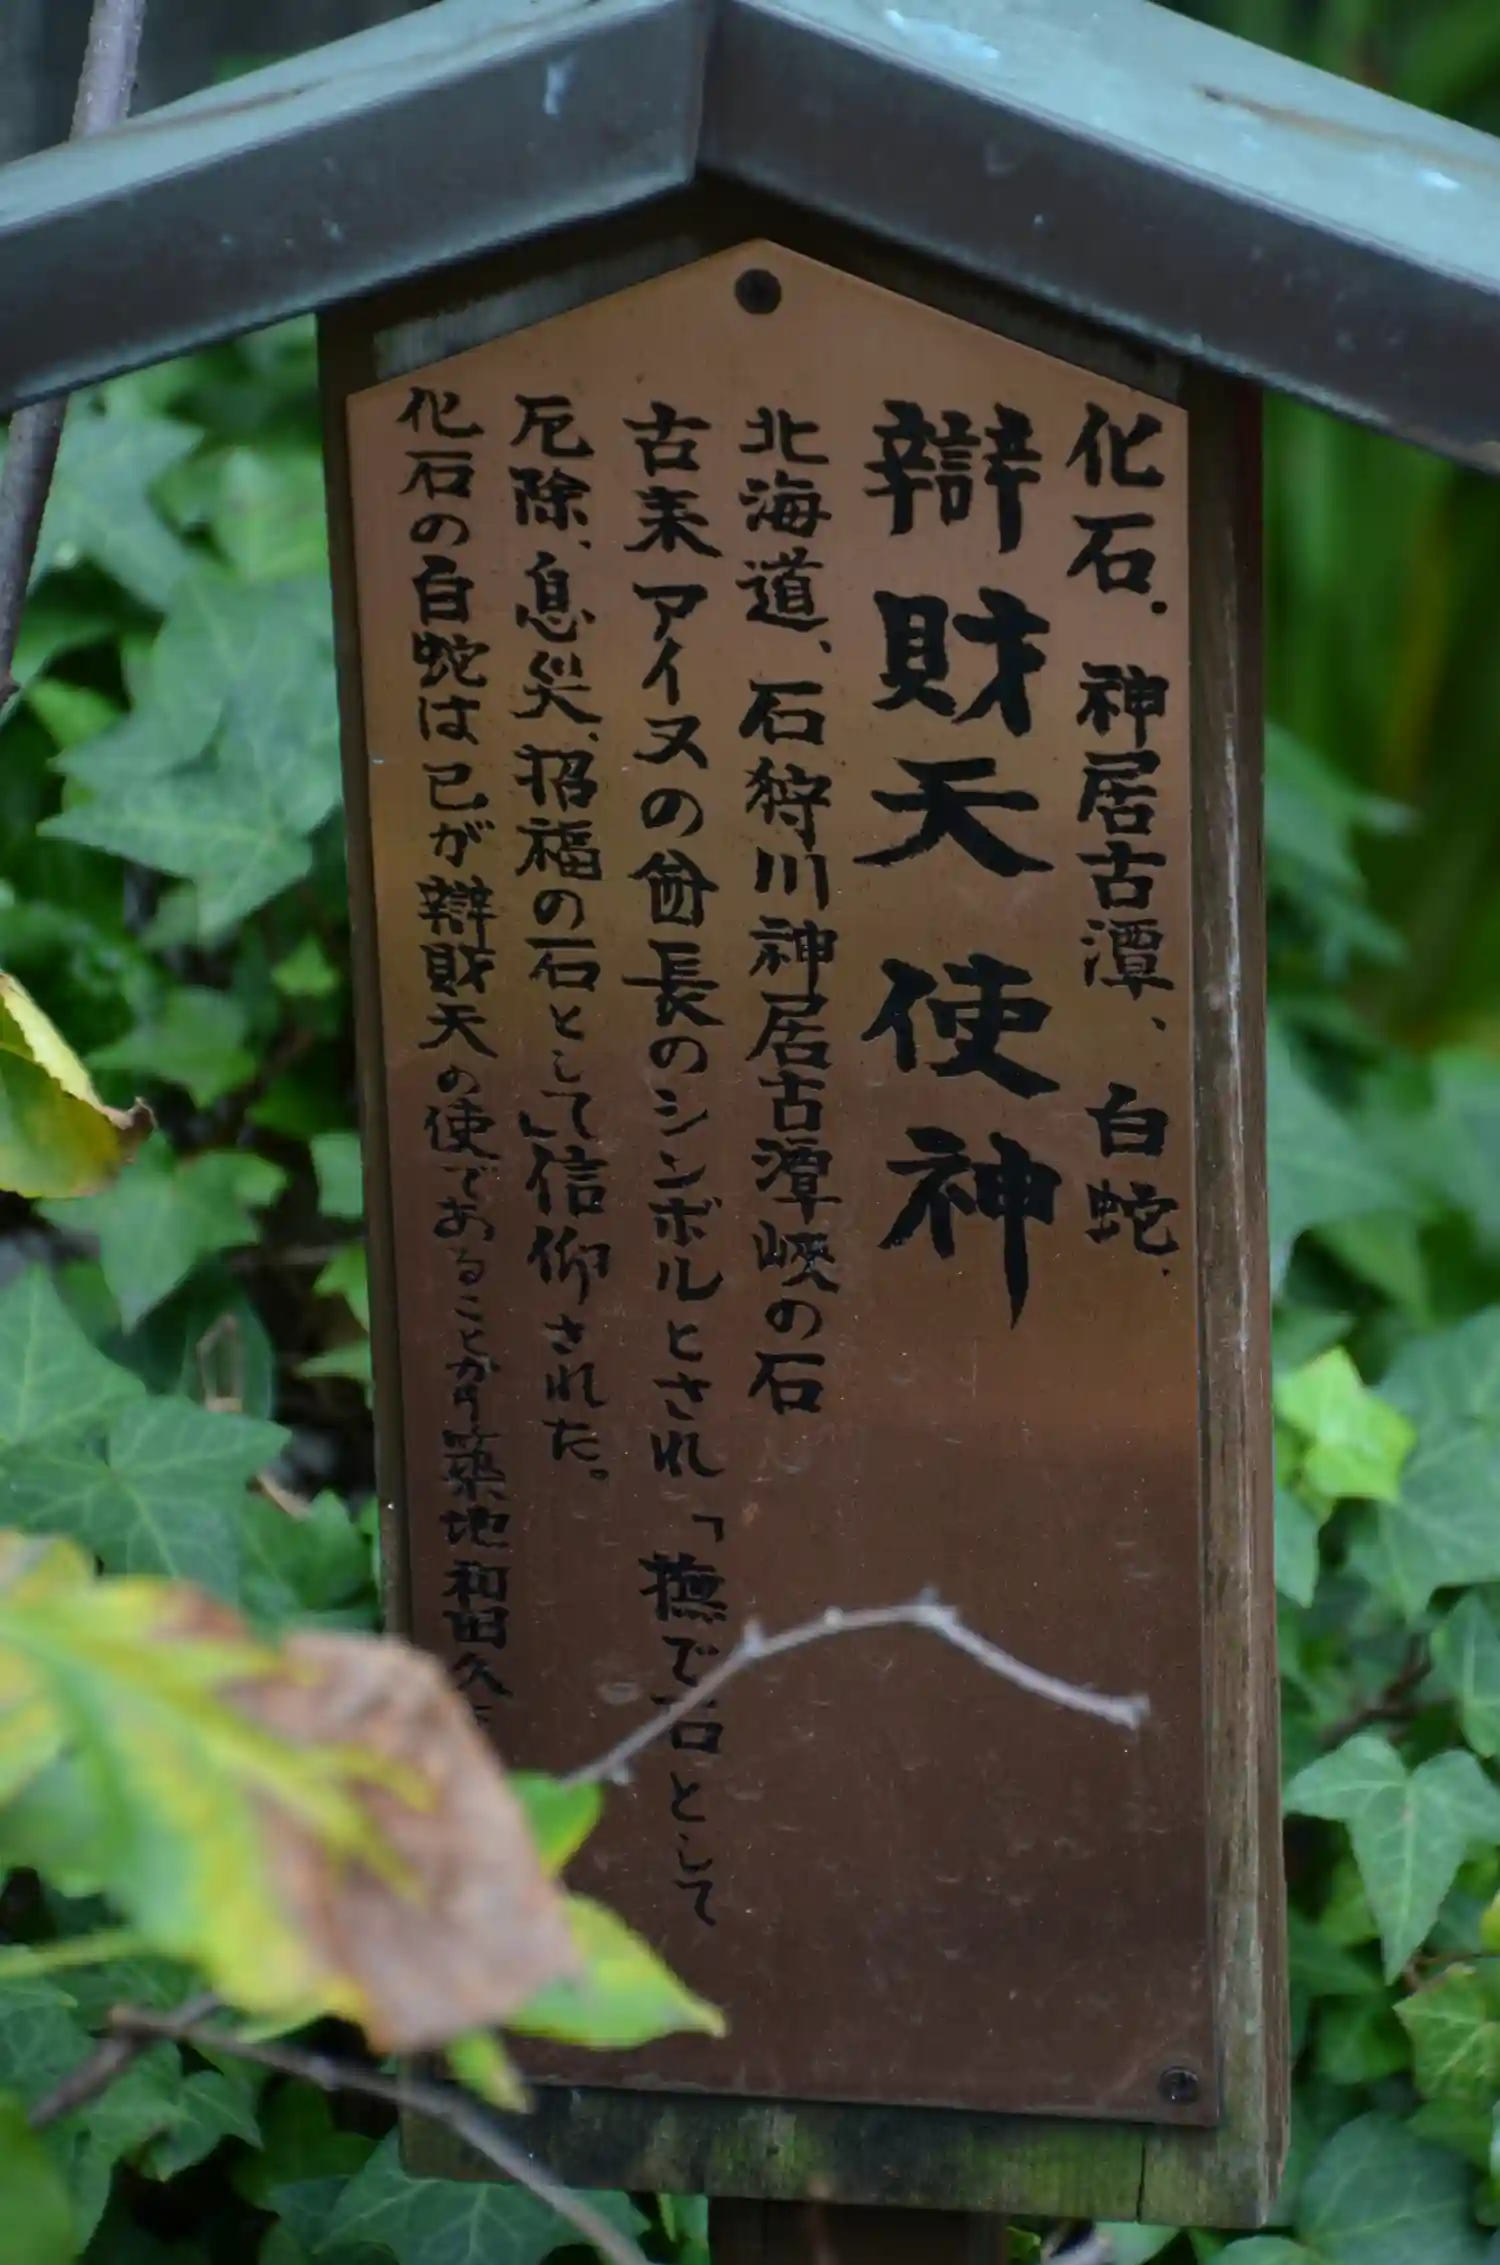 化石．神居古潭、白蛇．
辯財天使神
北海道、石狩川神居古潭峡の石
古来アイヌの酋長のシンボルとされ「撫で石として
厄除、息災、招福の石として」信仰された。
化石の白蛇は巳が辯財天の使であることから築地和田久